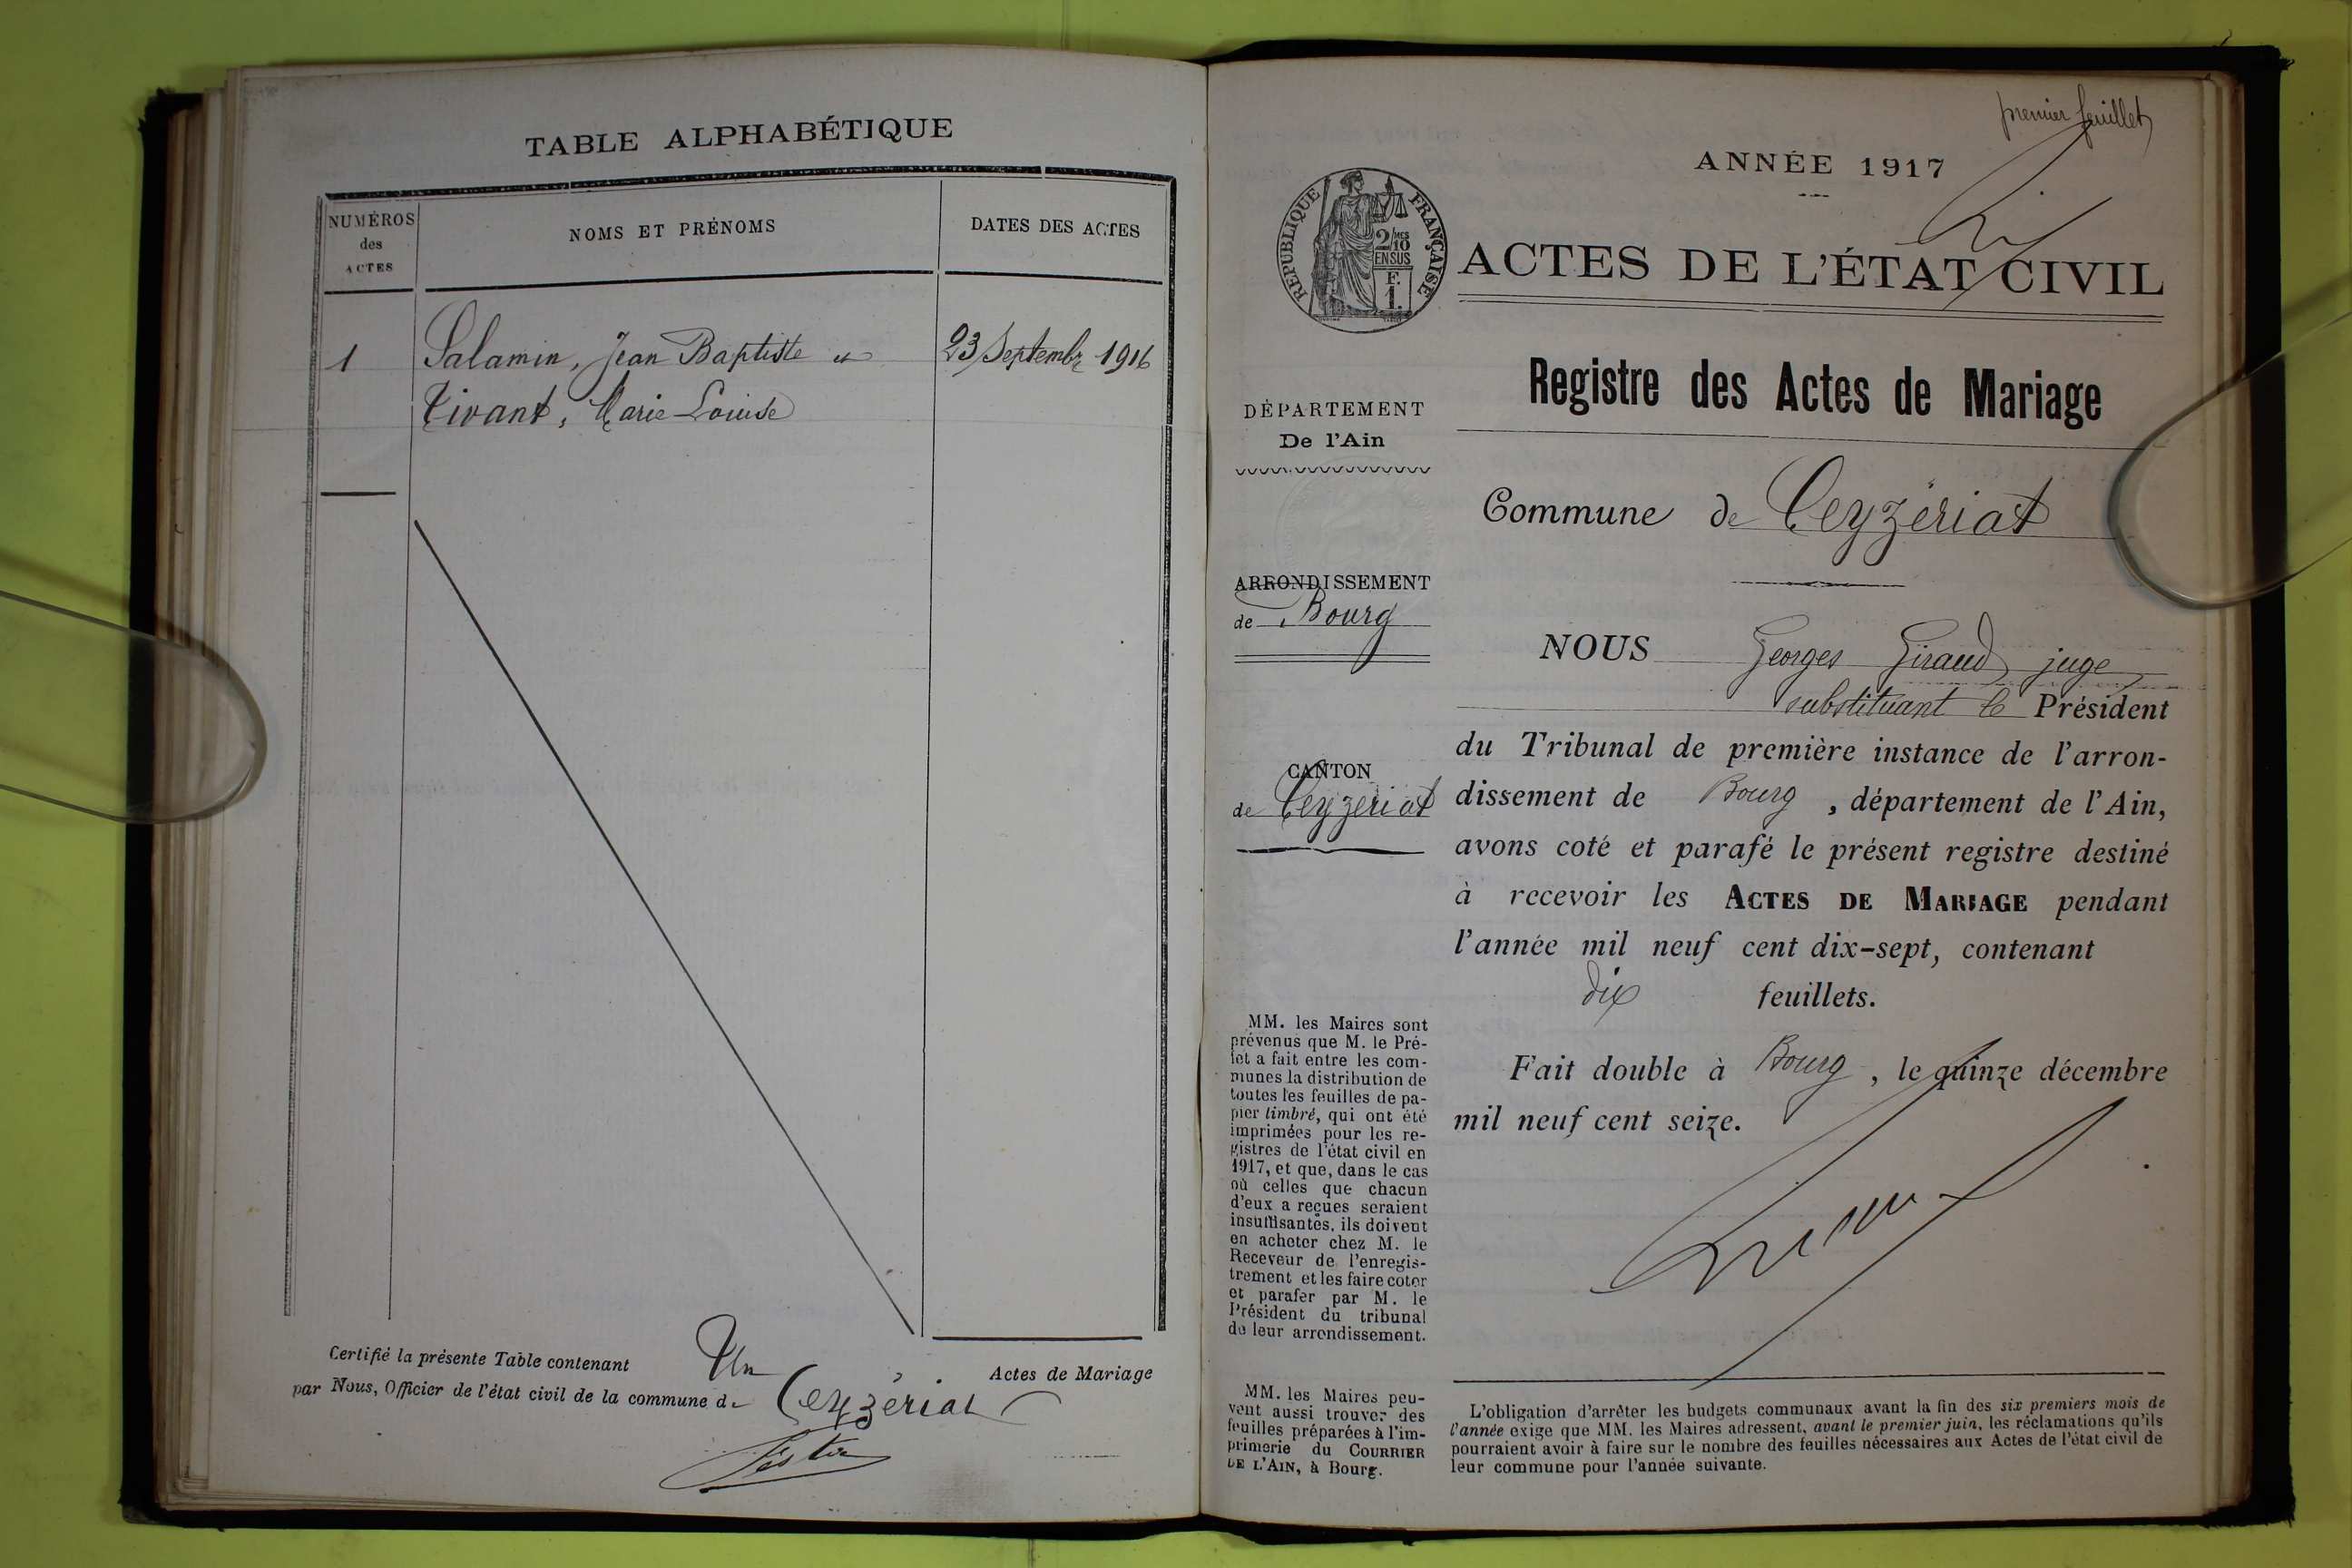 TABLE ALPHABÉTIQUE
NUMÉROS
des
ACTES
NOMS ET PRÉNOMS
DATES DES ACTES
1
Salamin, Jean Baptiste et
23 Septembre 1916
Tivant, Marie-Louise
Certifié la présente Table contenant Un Actes de Mariage
par Nous, Officier de l'état civil de la commune de Ceyzériat
premier feuillet
ANNÉE 1917
RÉPUBLIQUE FRANÇAISE
2/10
MES
EN SUS
F.
1.
ACTES DE L'ÉTAT CIVIL
Registre des Actes de Mariage
DÉPARTEMENT
De l'Ain
Commune de Ceyzériat
ARRONDISSEMENT
de Bourg
CANTON
de Ceyzériat
NOUS Georges Giraud juge
substituant le Président
du Tribunal de première instance de l'arron-
dissement de Bourg, département de l'Ain,
avons coté et parafé le présent registre destiné
à recevoir les ACTES DE MARIAGE pendant
l'année mil neuf cent dix-sept, contenant
dix feuillets.
Fait double à Bourg, le quinze décembre
mil neuf cent seize.
MM. les Maires sont
prévenus que M. le Pré-
fet a fait entre les com-
munes la distribution de
toutes les feuilles de pa-
pier timbré, qui ont été
imprimées pour les re-
gistres de l'état civil en
1917, et que, dans le cas
où celles que chacun
d'eux a reçues seraient
insuffisantes, ils doivent
en acheter chez M. le
Receveur de l'enregis-
trement et les faire coter
et parafer par M. le
Président du tribunal
de leur arrondissement.
MM. les Maires peu-
vent aussi trouver des
feuilles préparées à l'im-
primerie du COURRIER
DE L'AIN, à Bourg.
L'obligation d'arrêter les budgets communaux avant la fin des six premiers mois de
l'année exige que MM. les Maires adressent, avant le premier juin, les réclamations qu'ils
pourraient avoir à faire sur le nombre des feuilles nécessaires aux Actes de l'état civil de
leur commune pour l'année suivante.